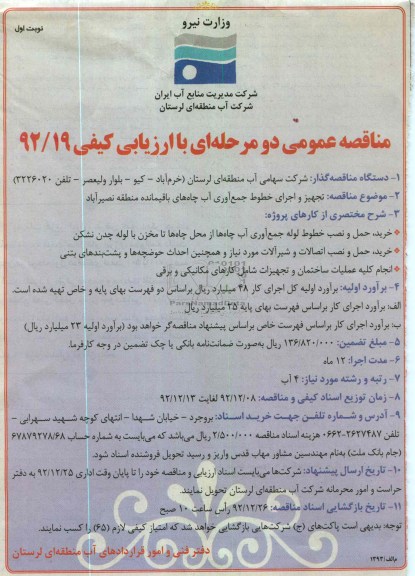 وزارت نیرو
نوبت اول
شرکت مدیریت منابع آب ایران
شرکت آب منطقه‌ای لرستان
مناقصه عمومی دو مرحله‌ای با ارزیابی کیفی ۹۲/۱۹
۱- دستگاه مناقصه‌گذار: شرکت سهامی آب منطقه‌ای لرستان (خرم‌آباد - کیو - بلوار ولیعصر - تلفن ۳۲۲۶۰۲۰)
۲- موضوع مناقصه: تجهیز و اجرای خطوط جمع‌آوری آب چاه‌های باقیمانده منطقه نصیرآباد
۳- شرح مختصری از کارهای پروژه:
خرید، حمل و نصب خطوط لوله جمع‌آوری آب چاه‌ها از محل چاه‌ها تا مخزن با لوله چدن نشکن
خرید، حمل و نصب اتصالات و شیرآلات مورد نیاز و همچنین احداث حوضچه‌ها و پشت‌بندهای بتنی
انجام کلیه عملیات ساختمان و تجهیزات شامل کارهای مکانیکی و برقی
۴- برآورد اولیه: برآورد اولیه کل اجرای کار ۴۸ میلیارد ریال براساس دو فهرست بهای پایه و خاص تهیه شده است.
الف: برآورد اجرای کار براساس فهرست بهای پایه ۲۵ میلیارد ریال
ب: برآورد اجرای کار براساس فهرست خاص براساس پیشنهاد مناقصه‌گر خواهد بود (برآورد اولیه ۲۳ میلیارد ریال)
۵- مبلغ تضمین: ۱۳۶/۸۲۰/۰۰۰ ریال به‌صورت ضمانت‌نامه بانکی یا چک تضمین در وجه کارفرما.
۶- مدت اجرا: ۱۲ ماه
۷- رتبه و رشته مورد نیاز: ۴ آب
۸- زمان توزیع اسناد کیفی و مناقصه: ۹۲/۱۲/۰۸ لغایت ۹۲/۱۲/۱۳
۹- آدرس و شماره تلفن جهت خرید اسناد: بروجرد - خیابان شهدا - انتهای کوچه شهید سهرابی -
تلفن ۲۶۳۷۴۸۷-۰۶۶۲ هزینه اسناد مناقصه ۲/۵۰۰/۰۰۰ ریال می‌باشد که می‌بایست به شماره حساب ۶۷۸۷۹۲۷۸/۶۸
(جام بانک ملت) به‌نام مهندسین مشاور مهاب قدس واریز و رسید تحویل فروشنده اسناد شود.
۱۰- تاریخ ارسال پیشنهاد: شرکت‌ها می‌بایست اسناد ارزیابی و مناقصه خود را تا پایان وقت اداری ۹۲/۱۲/۲۵ به دفتر
حراست و امور محرمانه شرکت آب منطقه‌ای لرستان تحویل نمایند.
۱۱- تاریخ بازگشایی اسناد مناقصه: ۹۲/۱۲/۲۶ رأس ساعت ۱۰ صبح
توجه: بدیهی است پاکت‌های (ج) شرکت‌هایی بازگشایی خواهد شد که امتیاز کیفی لازم (۶۵) را کسب نمایند.
دفتر فنی و امور قراردادهای آب منطقه‌ای لرستان
م‌الف/۱۳۹۳